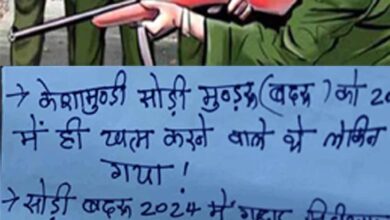 → केशामुण्डी सोड़ी मुण्ड़रू(बदरू) को 20
में ही खत्म करने वाले थे लेकिन
गया!
→ सोड़ी बदरू 2024 में